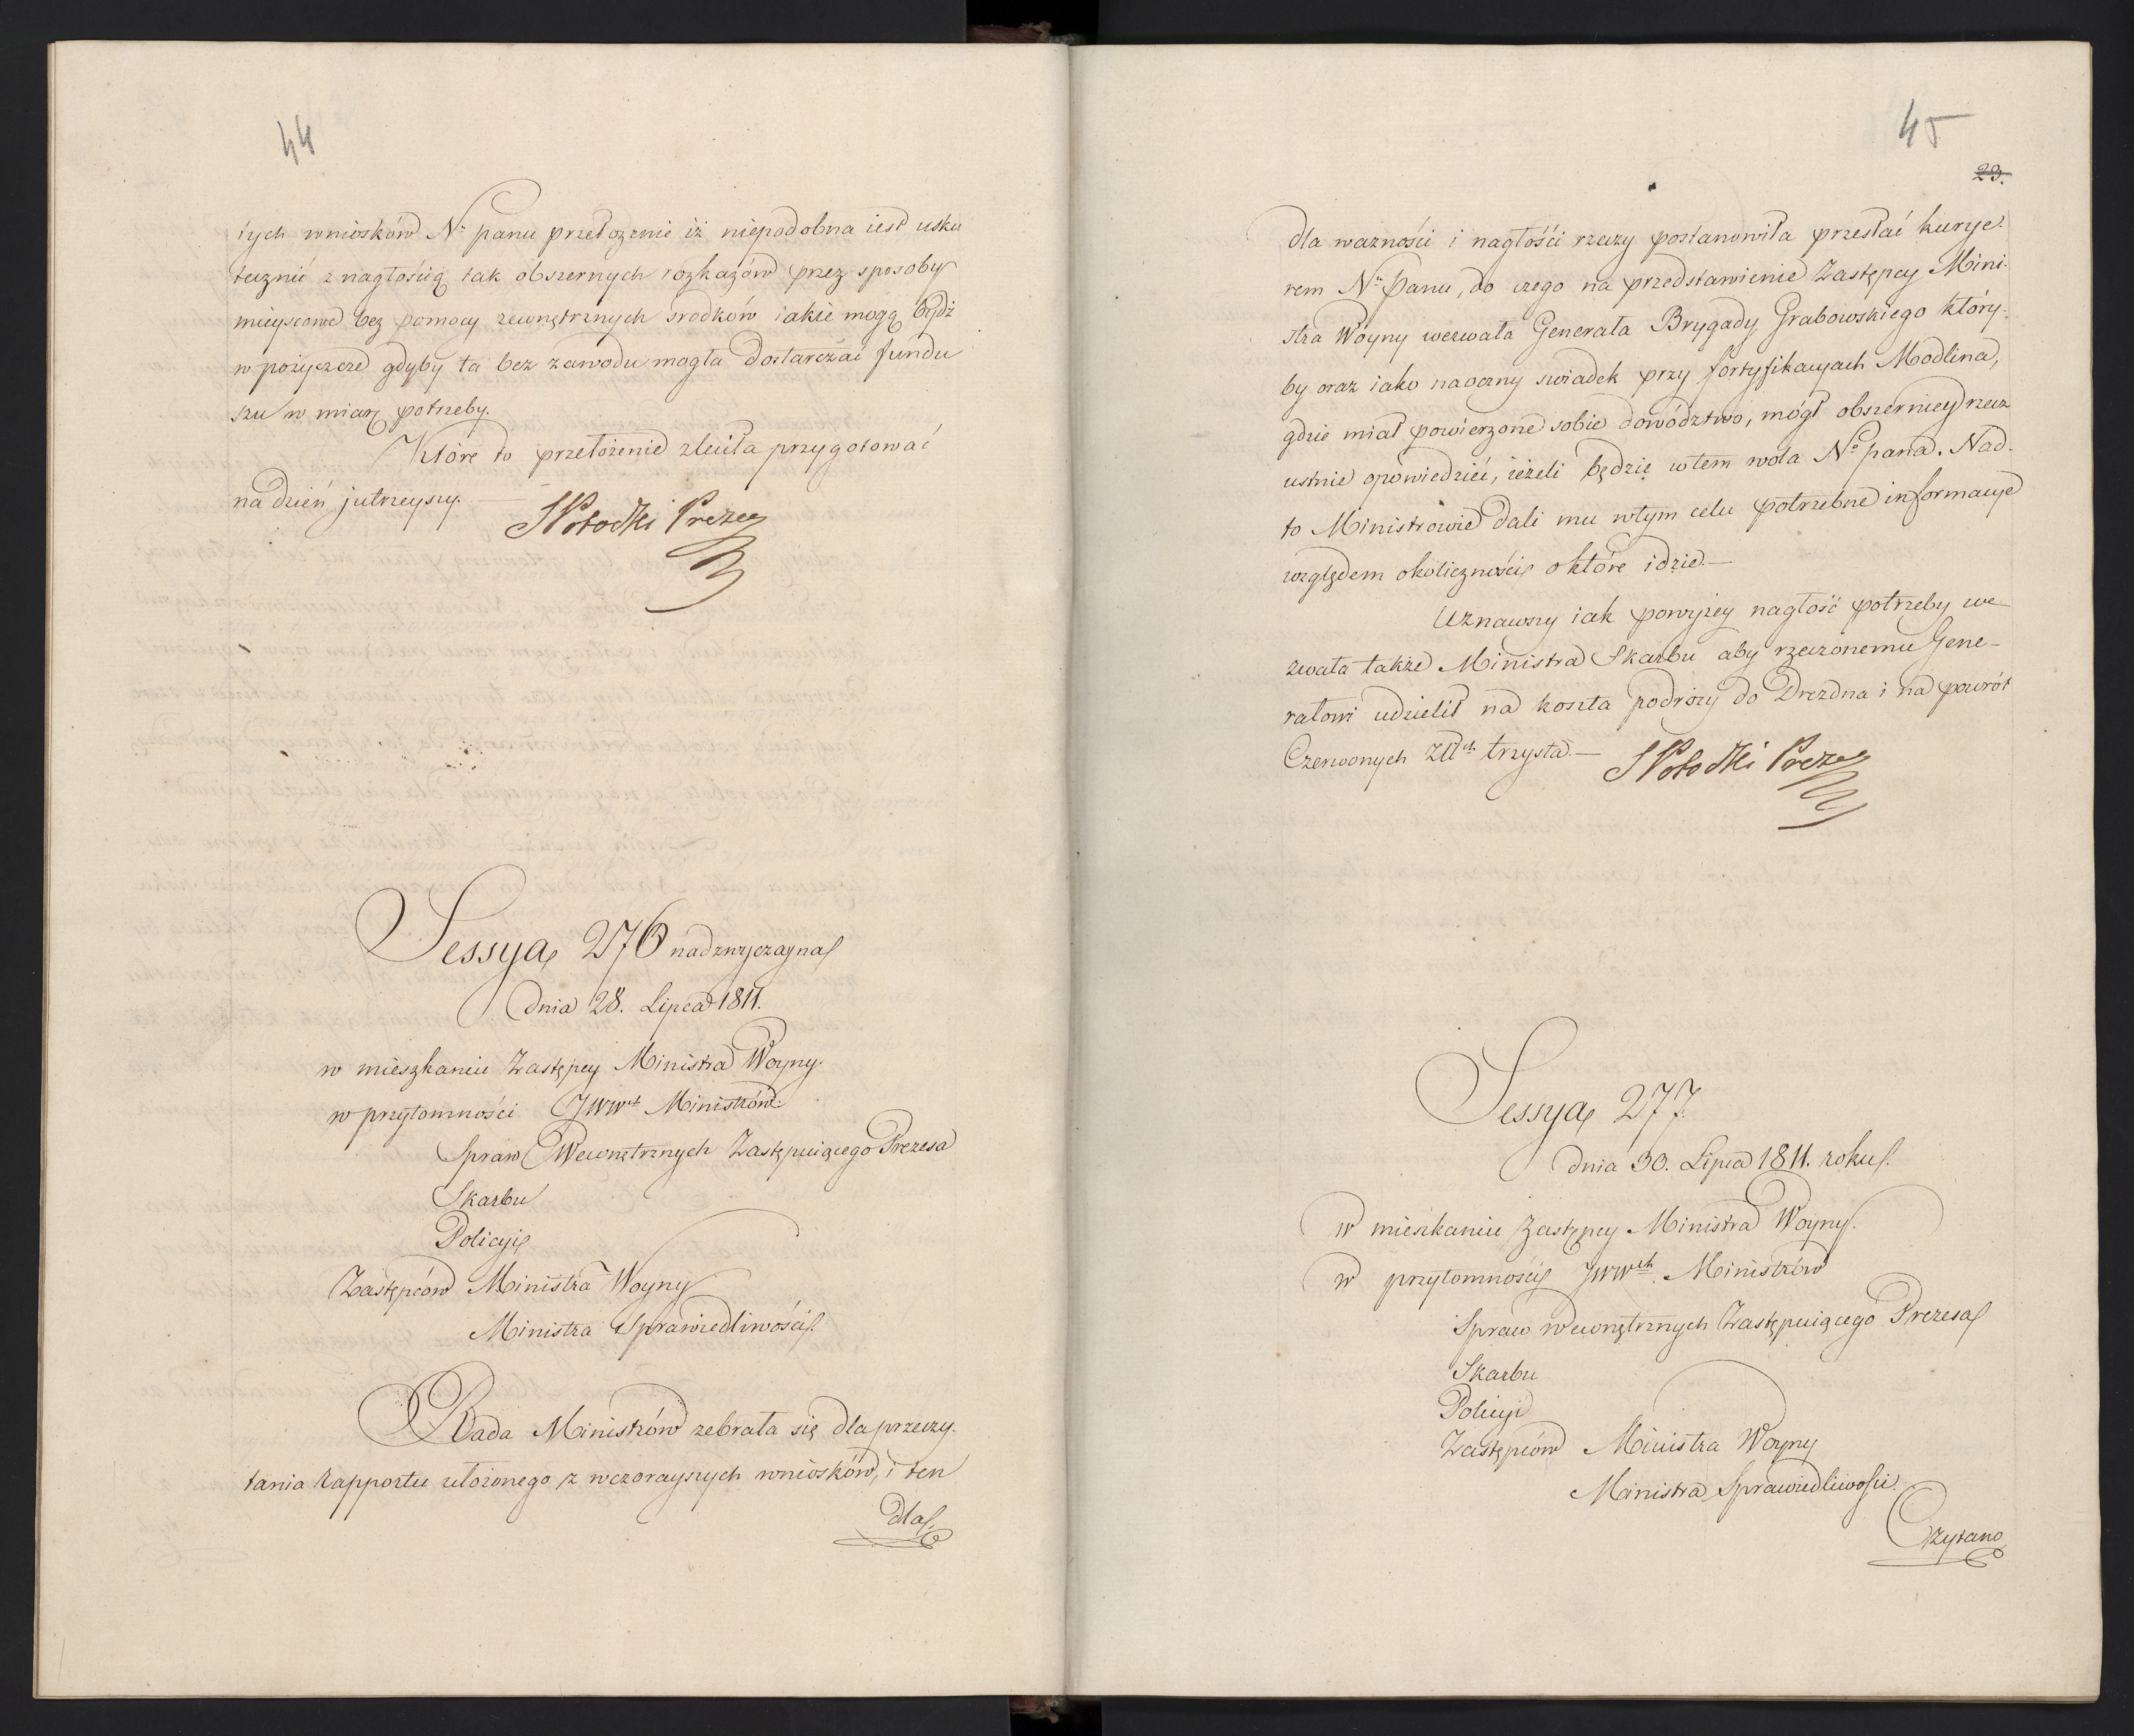 44
tych wniosków N: panu przełożenie iż niepodobna iest usku
tecznić z nagłością tak obszernych rozkazów przez sposoby
mieyscowe bez pomocy zewnętrznych srodków iakie mogą bydź
w pożyczce gdyby ta bez zawodu mogła dostarczać fundu
szu w miarę potrzeby.
Które to przełożenie zleciła przygotować
na dzień jutrzeyszy. —
SPotocki Prezes
Sessya 276 nadzwyczayna
dnia 28. Lipca 1811.
w mieszkaniu Zastępcy Ministra Woyny.
w przytomności JWWch Ministrów
Spraw Wewnętrznych Zastępuiącego Prezesa
Skarbu
Policyi
Zastępców Ministra Woyny
Ministra Sprawiedliwości.
Rada Ministrów zebrała się dla przeczy-
tania Rapportu ułożonego z wczorayszych wniosków, i ten
dla
45
23.
dla ważności i nagłości rzeczy postanowiła przesłać kurye-
rem N: Panu, do czego na przedstawienie Zastępcy Mini-
stra Woyny wezwała Generała Brygady Grabowskiego który-
by oraz iako naoczny swiadek przy fortyfikacyach Modlina,
gdzie miał powierzone sobie dowództwo, mógł obszerniey rzecz
ustnie opowiedzieć, ieżeli będzie w tem wola N: pana. Nad-
to Ministrowie dali mu w tym celu potrzebne informacye
względem okoliczności o które idzie.—
Uznawszy iak powyżey nagłość potrzeby we-
zwała także Ministra Skarbu aby rzeczonemu Gene-
rałowi udzielił na koszta podróży do Drezdna i na powrót
Czerwonych Złłch trzysta.—
SPotocki Prezes
Sessya 277.
dnia 30. Lipca 1811. roku.
w mieszkaniu Zastępcy Ministra Woyny.
w przytomności JWWch. Ministrów
Spraw Wewnętrznych Zastępuiącego Prezesa
Skarbu
Policyi
Zastępców Ministra Woyny
Ministra Sprawiedliwości.
Czytano